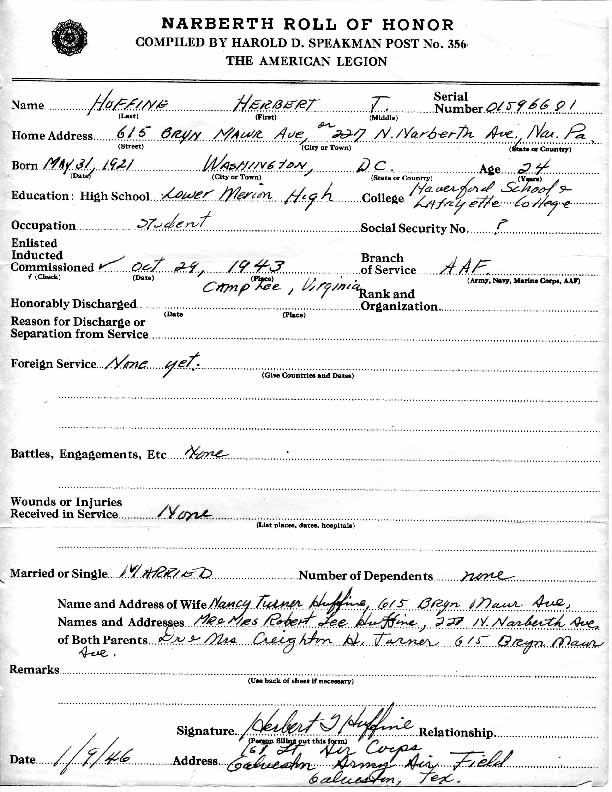 NARBERTH ROLL OF HONOR
COMPILED BY HAROLD D. SPEAKMAN POST No. 356
THE AMERICAN LEGION
Name HUFFINE HERBERT T. Serial Number 01596691
(Last) (First) (Middle)
Home Address 615 BRYN MAWR Ave, or 227 N. Narberth Ave, Nar. Pa.
(Street) (City or Town) (State or Country)
Born MAY 31, 1921 WASHINGTON, D.C. Age 24
(Date) (City or Town) (State or Country) (Years)
Education: High School Lower Merion High College Haverford School &
Lafayette College
Occupation Student Social Security No. ?
Enlisted
Inducted
Commissioned ✓ Oct 29, 1943 Branch of Service AAF
√ (Check) (Date) (Place) (Army, Navy, Marine Corps, AAF)
Camp Lee, Virginia
Honorably Discharged Rank and Organization
(Date (Place)
Reason for Discharge or
Separation from Service
Foreign Service None yet.
(Give Countries and Dates)
Battles, Engagements, Etc None
Wounds or Injuries
Received in Service None
(List places, dates, hospitals)
Married or Single MARRIED Number of Dependents none
Name and Address of Wife Nancy Turner Huffine, 615 Bryn Mawr Ave,
Names and Addresses Mr & Mrs Robert Lee Huffine, 227 N. Narberth Ave.
of Both Parents Dr & Mrs Creighton H. Turner 615 Bryn Mawr
Ave.
Remarks
(Use back of sheet if necessary)
Signature Herbert T Huffine Relationship
(Person filling out this form)
1st Lt, Air Corps
Date 1/9/46 Address Galveston Army Air Field
Galveston, Tex.